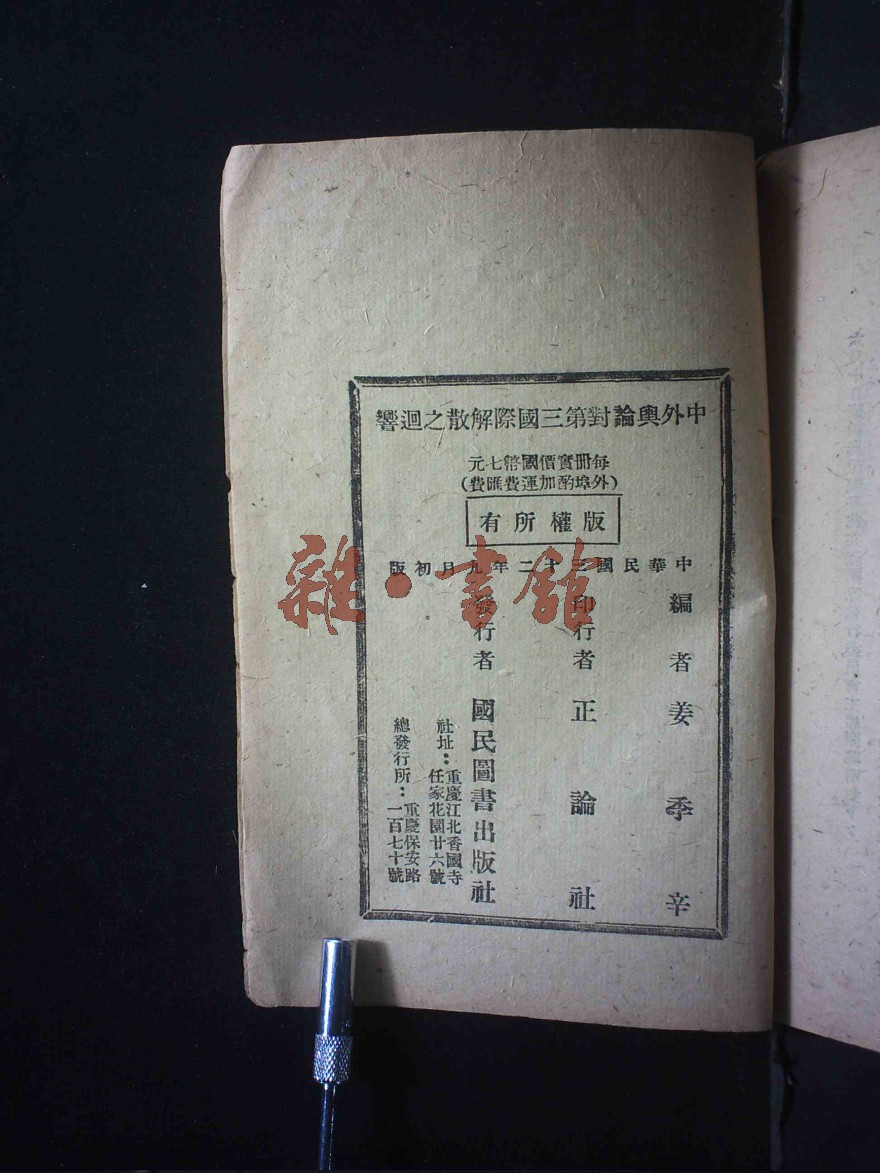 中外輿論對第三國際解散之迴響
每冊實價國幣七元
(外埠酌加運費匯費)
版權所有
中華民國三十二年九月初版
編者 姜季辛
印行者 正論社
發行者 國民圖書出版社
社址：重慶江北香國寺
任家花園廿六號
總發行所：重慶保安路
一百七十號
雜·書館